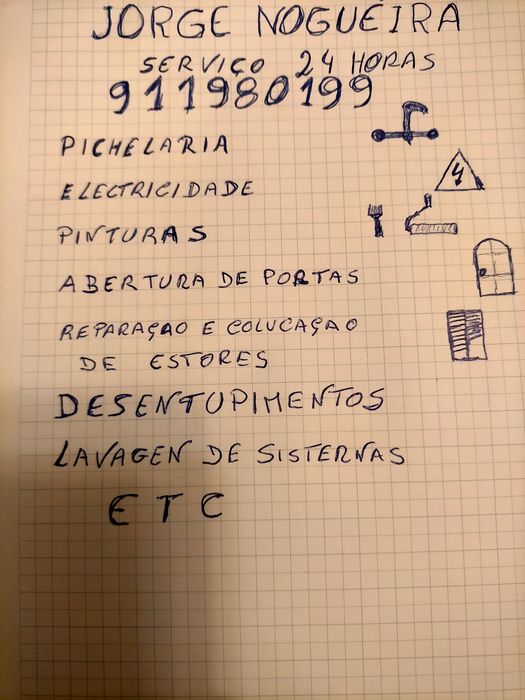 JORGE NOGUEIRA
SERVIÇO 24 HORAS
911980199
PICHELARIA
ELECTRICIDADE
PINTURAS
ABERTURA DE PORTAS
REPARAÇAO E COLUCAÇAO
DE ESTORES
DESENTUPIMENTOS
LAVAGEN DE SISTERNAS
ETC